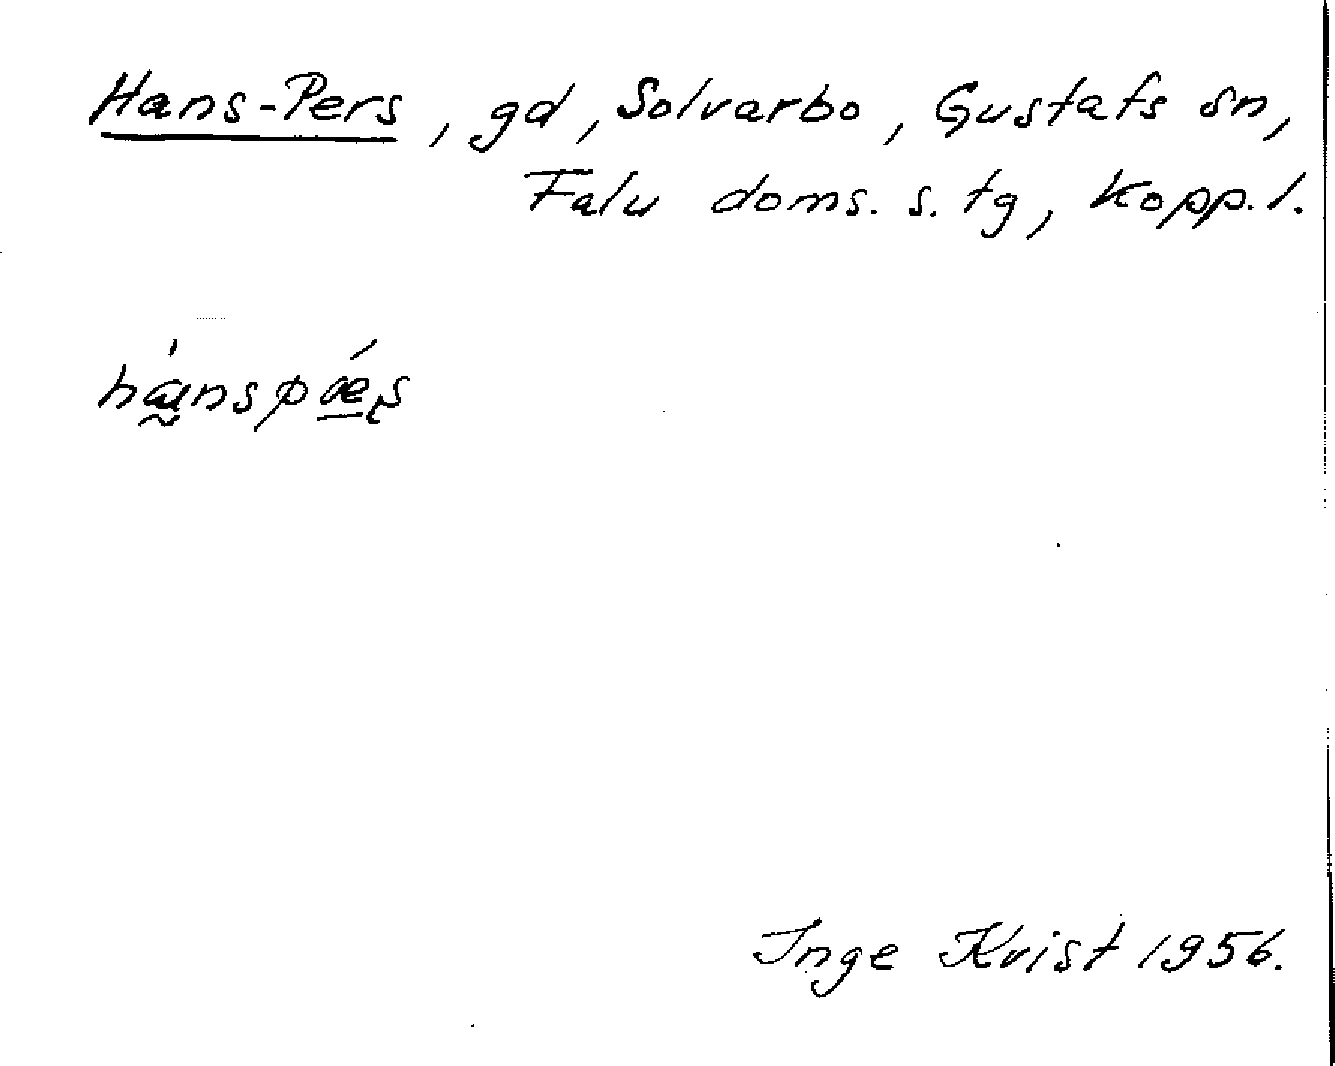 Hans-Pers, gd, Solvarbo, Gustafs sn,
Falu doms. s. tg, Kopp. l.
hanspæs
Inge Kvist 1956.